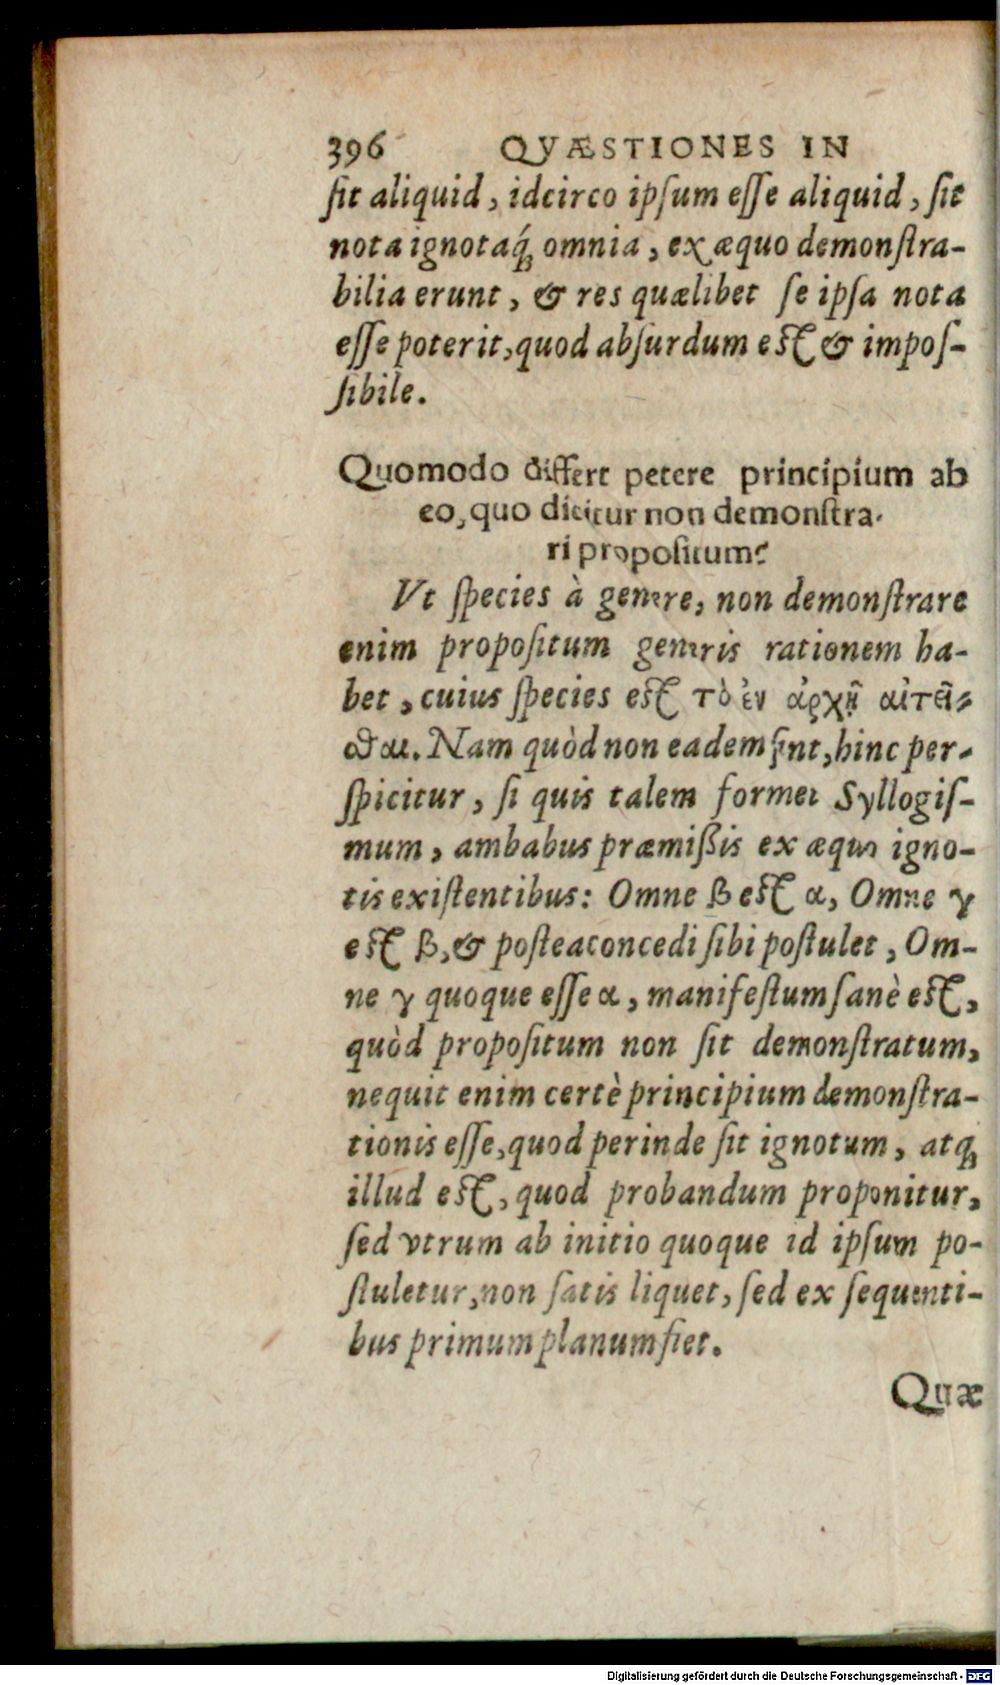 396 QVÆSTIONES IN
ſit aliquid, idcirco ipſum eſſe aliquid, ſit
nota ignotaq́; omnia, ex æquo demonſtra-
bilia erunt, & res quælibet ſe ipſa nota
eſſe poterit, quod abſurdum eſt & impoſ-
ſibile.
Quomodo differt petere principium ab
eo, quo dicitur non demonſtra-
ri propoſitum?
Vt ſpecies à genere, non demonſtrare
enim propoſitum generis rationem ha-
bet, cuius ſpecies eſt τὸ ἐν ἀρχῇ αἰτεῖ-
σθαι. Nam quòd non eadem ſint, hinc per-
ſpicitur, ſi quis talem formet Syllogiſ-
mum, ambabus præmißis ex æquo igno-
tis exiſtentibus: Omne β eſt α, Omne γ
eſt β, & poſtea concedi ſibi poſtulet, Om-
ne γ quoque eſſe α, manifeſtum ſanè eſt,
quòd propoſitum non ſit demonſtratum,
nequit enim certè principium demonſtra-
tionis eſſe, quod perinde ſit ignotum, atq;
illud eſt, quod probandum proponitur,
ſed vtrum ab initio quoque id ipſum po-
ſtuletur, non ſatis liquet, ſed ex ſequenti-
bus primum planum fiet.
Quæ
Digitalisierung gefördert durch die Deutsche Forschungsgemeinschaft - DFG